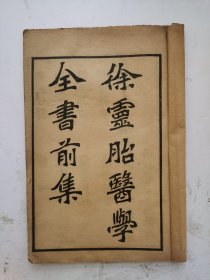 徐靈胎醫學
全書前集